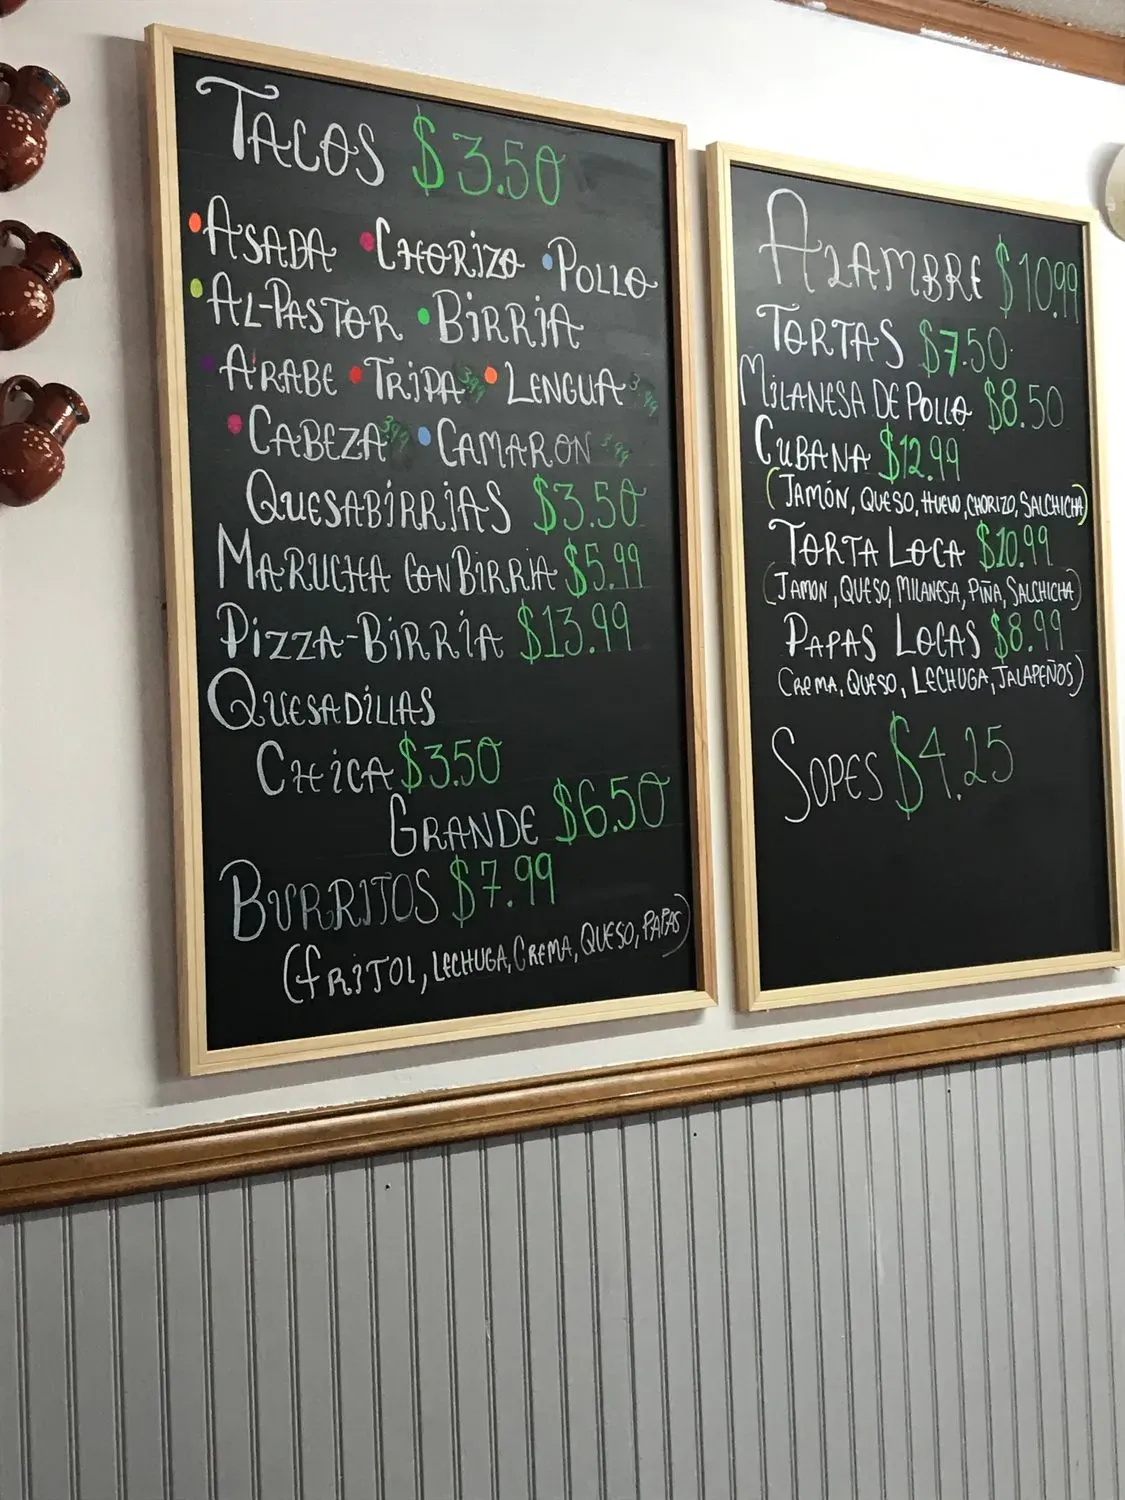 TACOS $3.50
•ASADA •CHORIZO •POLLO
•AL-PASTOR •BIRRIA
•ARABE •TRIPA 3.99 •LENGUA 3.99
•CABEZA 3.99 •CAMARON 3.99
QUESABIRRIAS $3.50
MARUCHA CON BIRRIA $5.99
PIZZA-BIRRIA $13.99
QUESADILLAS
CHICA $3.50
GRANDE $6.50
BURRITOS $7.99
(FRIJOL, LECHUGA, CREMA, QUESO, PAPAS)
ALAMBRE $10.99
TORTAS $7.50
MILANESA DE POLLO $8.50
CUBANA $12.99
(JAMÓN, QUESO, HUEVO, CHORIZO, SALCHICHA)
TORTA LOCA $10.99
(JAMON, QUESO, MILANESA, PIÑA, SALCHICHA)
PAPAS LOCAS $8.99
CREMA, QUESO, LECHUGA, JALAPEÑOS)
SOPES $4.25